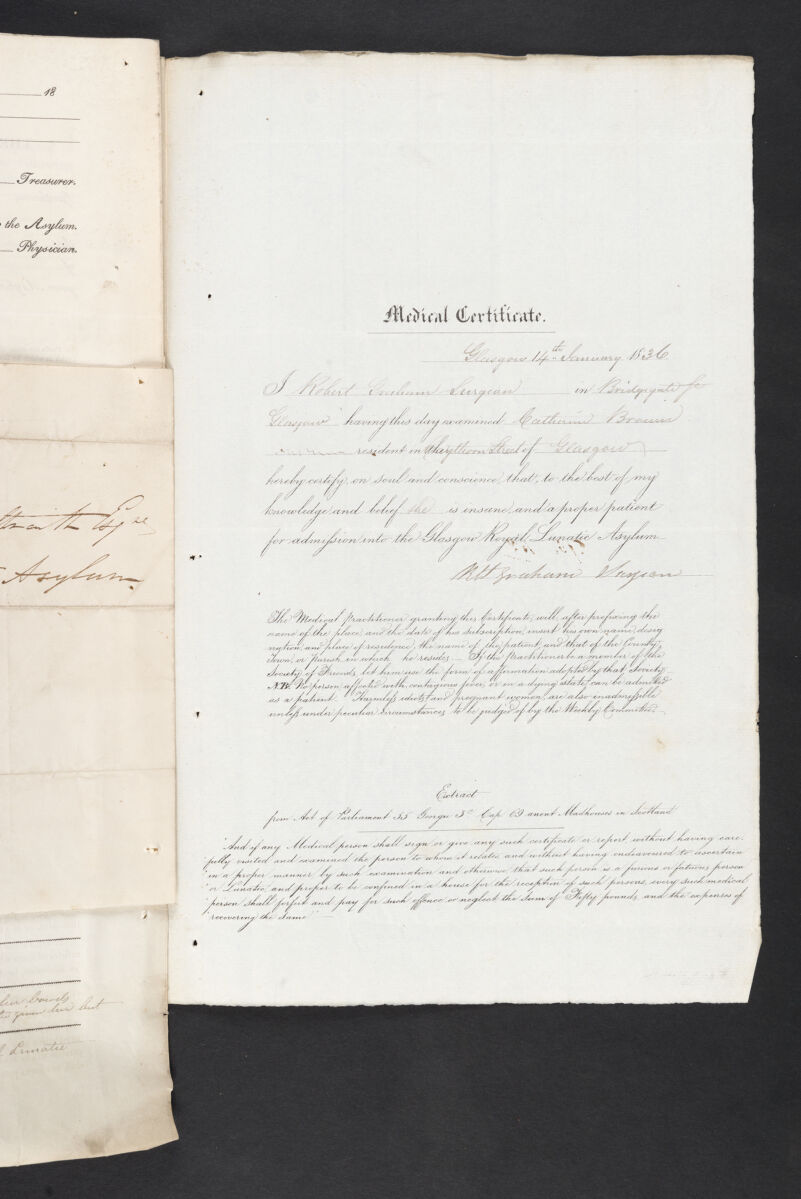 18
Treasurer.
the Asylum.
Physician.
Esqre
Asylum
Lunatic
Medical Certificate.
Glasgow 14th January 1836
I Robert Graham Surgeon in Bridgegate St
Glasgow having this day examined Catherine Brown
resident in Street of Glasgow
hereby certify, on soul and conscience, that, to the best of my
knowledge and belief she is insane, and a proper patient
for admission into the Glasgow Royal Lunatic Asylum
Rt Graham Surgeon
The Medical Practitioner granting this Certificate, will, after prefixing the
name of the place, and the date of his subscription, insert his own name, desig
nation, and place of residence, the name of the patient, and that of the County,
town, or parish, in which he resides. — If the Practitioner be a member of the
Society of Friends, let him use the form of affirmation adopted by that Society
N.B. No person affected with contagious fever, or in a dying state, can be admitted
as a patient. Harmless idiots and pregnant women, are also inadmissible
unless under peculiar circumstances, to be judged of by the Weekly Committee.
Extract
from Act of Parliament 55 George 3d Cap 69 anent Madhouses in Scotland
"And if any Medical person shall sign or give any such certificate or report, without having care-
"fully visited and examined the person to whom it relates, and without having endeavoured to ascertain
"in a proper manner by such examination and otherwise, that such person is a furious or fatuous person
"or Lunatic, and proper to be confined in a house for the reception of such persons, every such medical
"person shall forfeit and pay for such offence or neglect the Sum of Fifty pounds, and the expenses of
"recovering the same" —